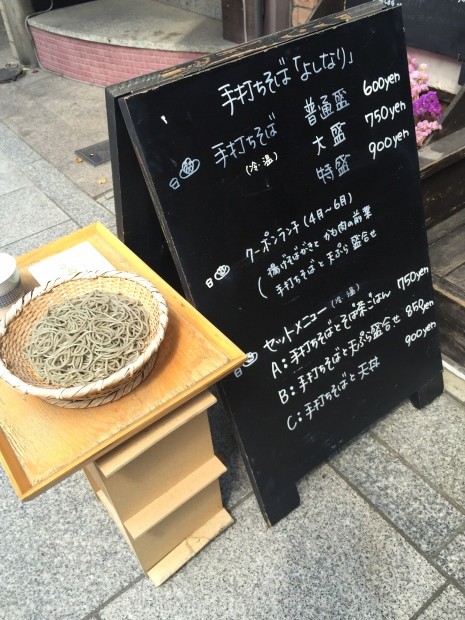 手打ちそば「よしなり」
手打ちそば 普通盛 600yen
(冷・温) 大盛 750yen
特盛 900yen
クーポンランチ(4月~6月)
( 揚げそばがきと かも肉の前菜
手打ちそばと 天ぷら盛合せ
セットメニュー (冷・温)
A:手打ちそばとそば茶ごはん 750yen
B:手打ちそばと天ぷら盛合せ 850yen
C:手打ちそばと 天丼 900yen